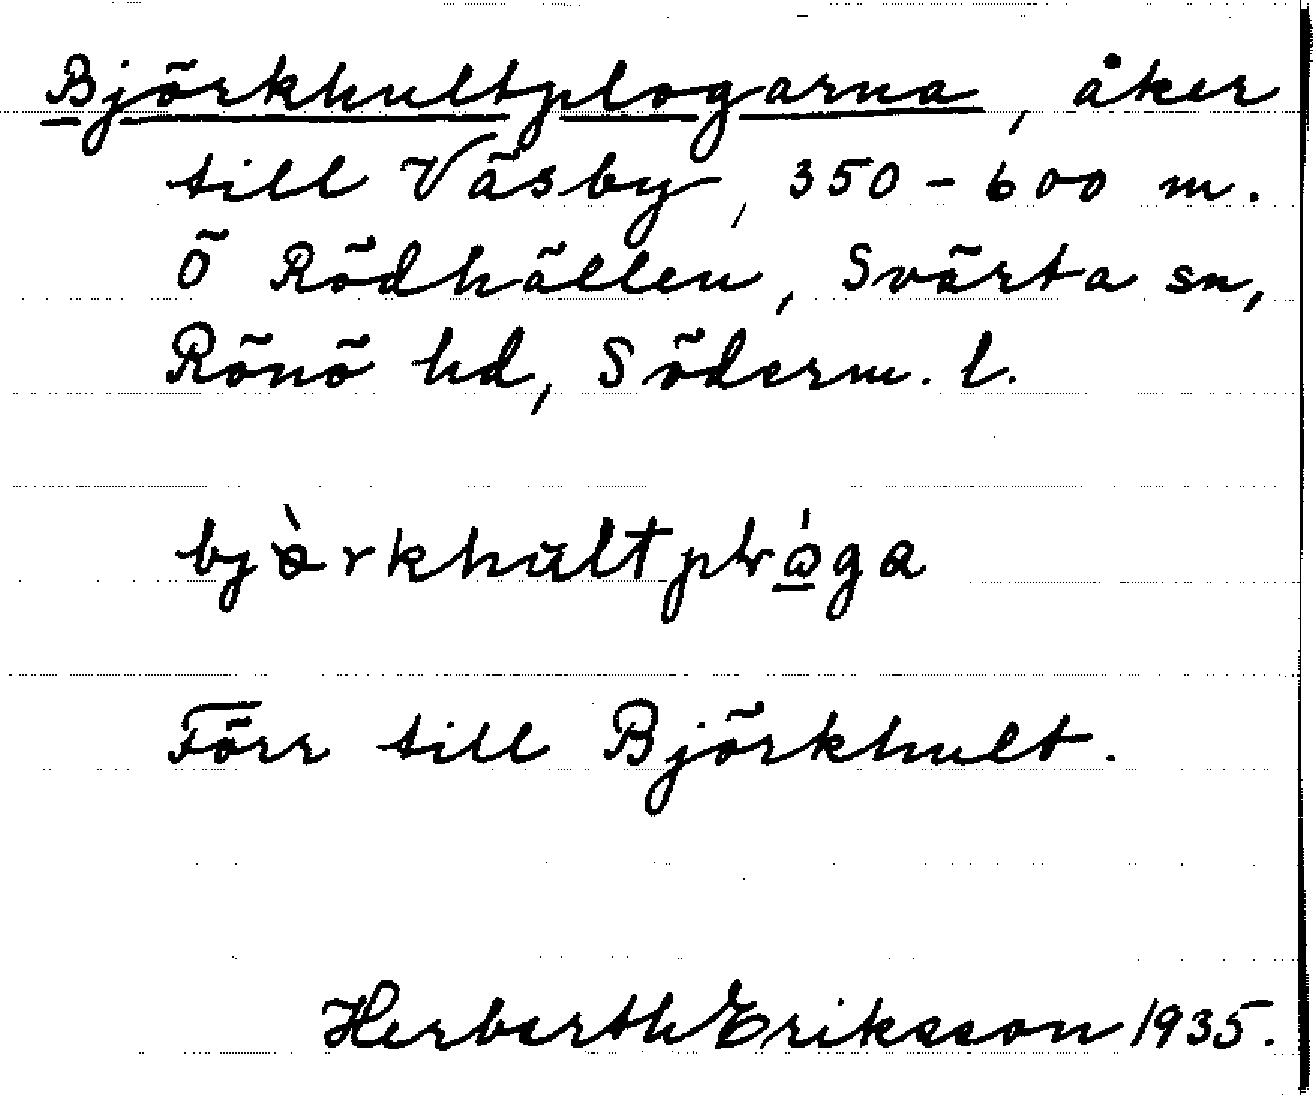 Björkhultplogarna, åker
till Väsby, 350-600 m.
Ö Rödhällen, Svärta sn,
Rönö hd, Söderm. l.
bjòrkhultplóga
Förr till Björkhult.
Herberth Eriksson 1935.